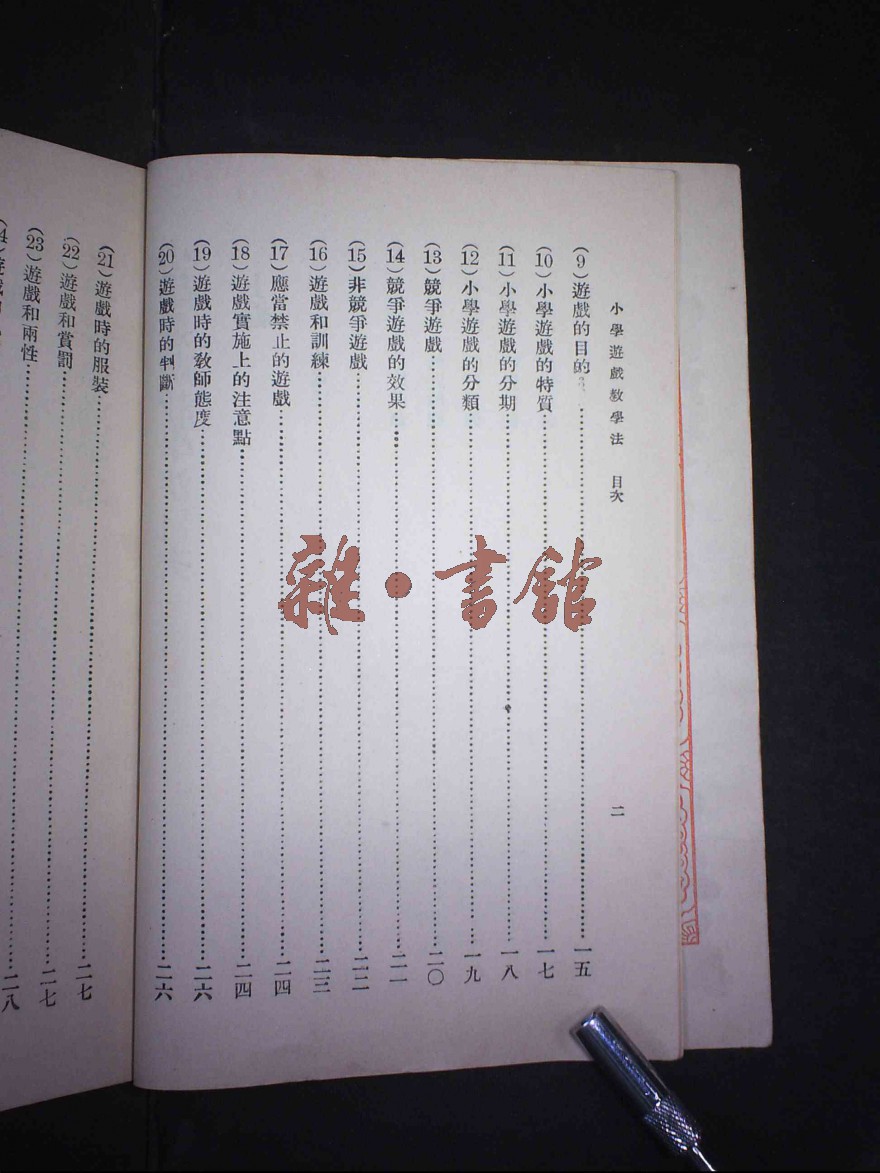 小學遊戲教學法　目次
二
(9)遊戲的目的……一五
(10)小學遊戲的特質……一七
(11)小學遊戲的分期……一八
(12)小學遊戲的分類……一九
(13)競爭遊戲……二〇
(14)競爭遊戲的效果……二一
(15)非競爭遊戲……二二
(16)遊戲和訓練……二三
(17)應當禁止的遊戲……二四
(18)遊戲實施上的注意點……二四
(19)遊戲時的敎師態度……二六
(20)遊戲時的判斷……二六
(21)遊戲時的服裝……二七
(22)遊戲和賞罰……二七
(23)遊戲和兩性……二七
二八
雜·書館